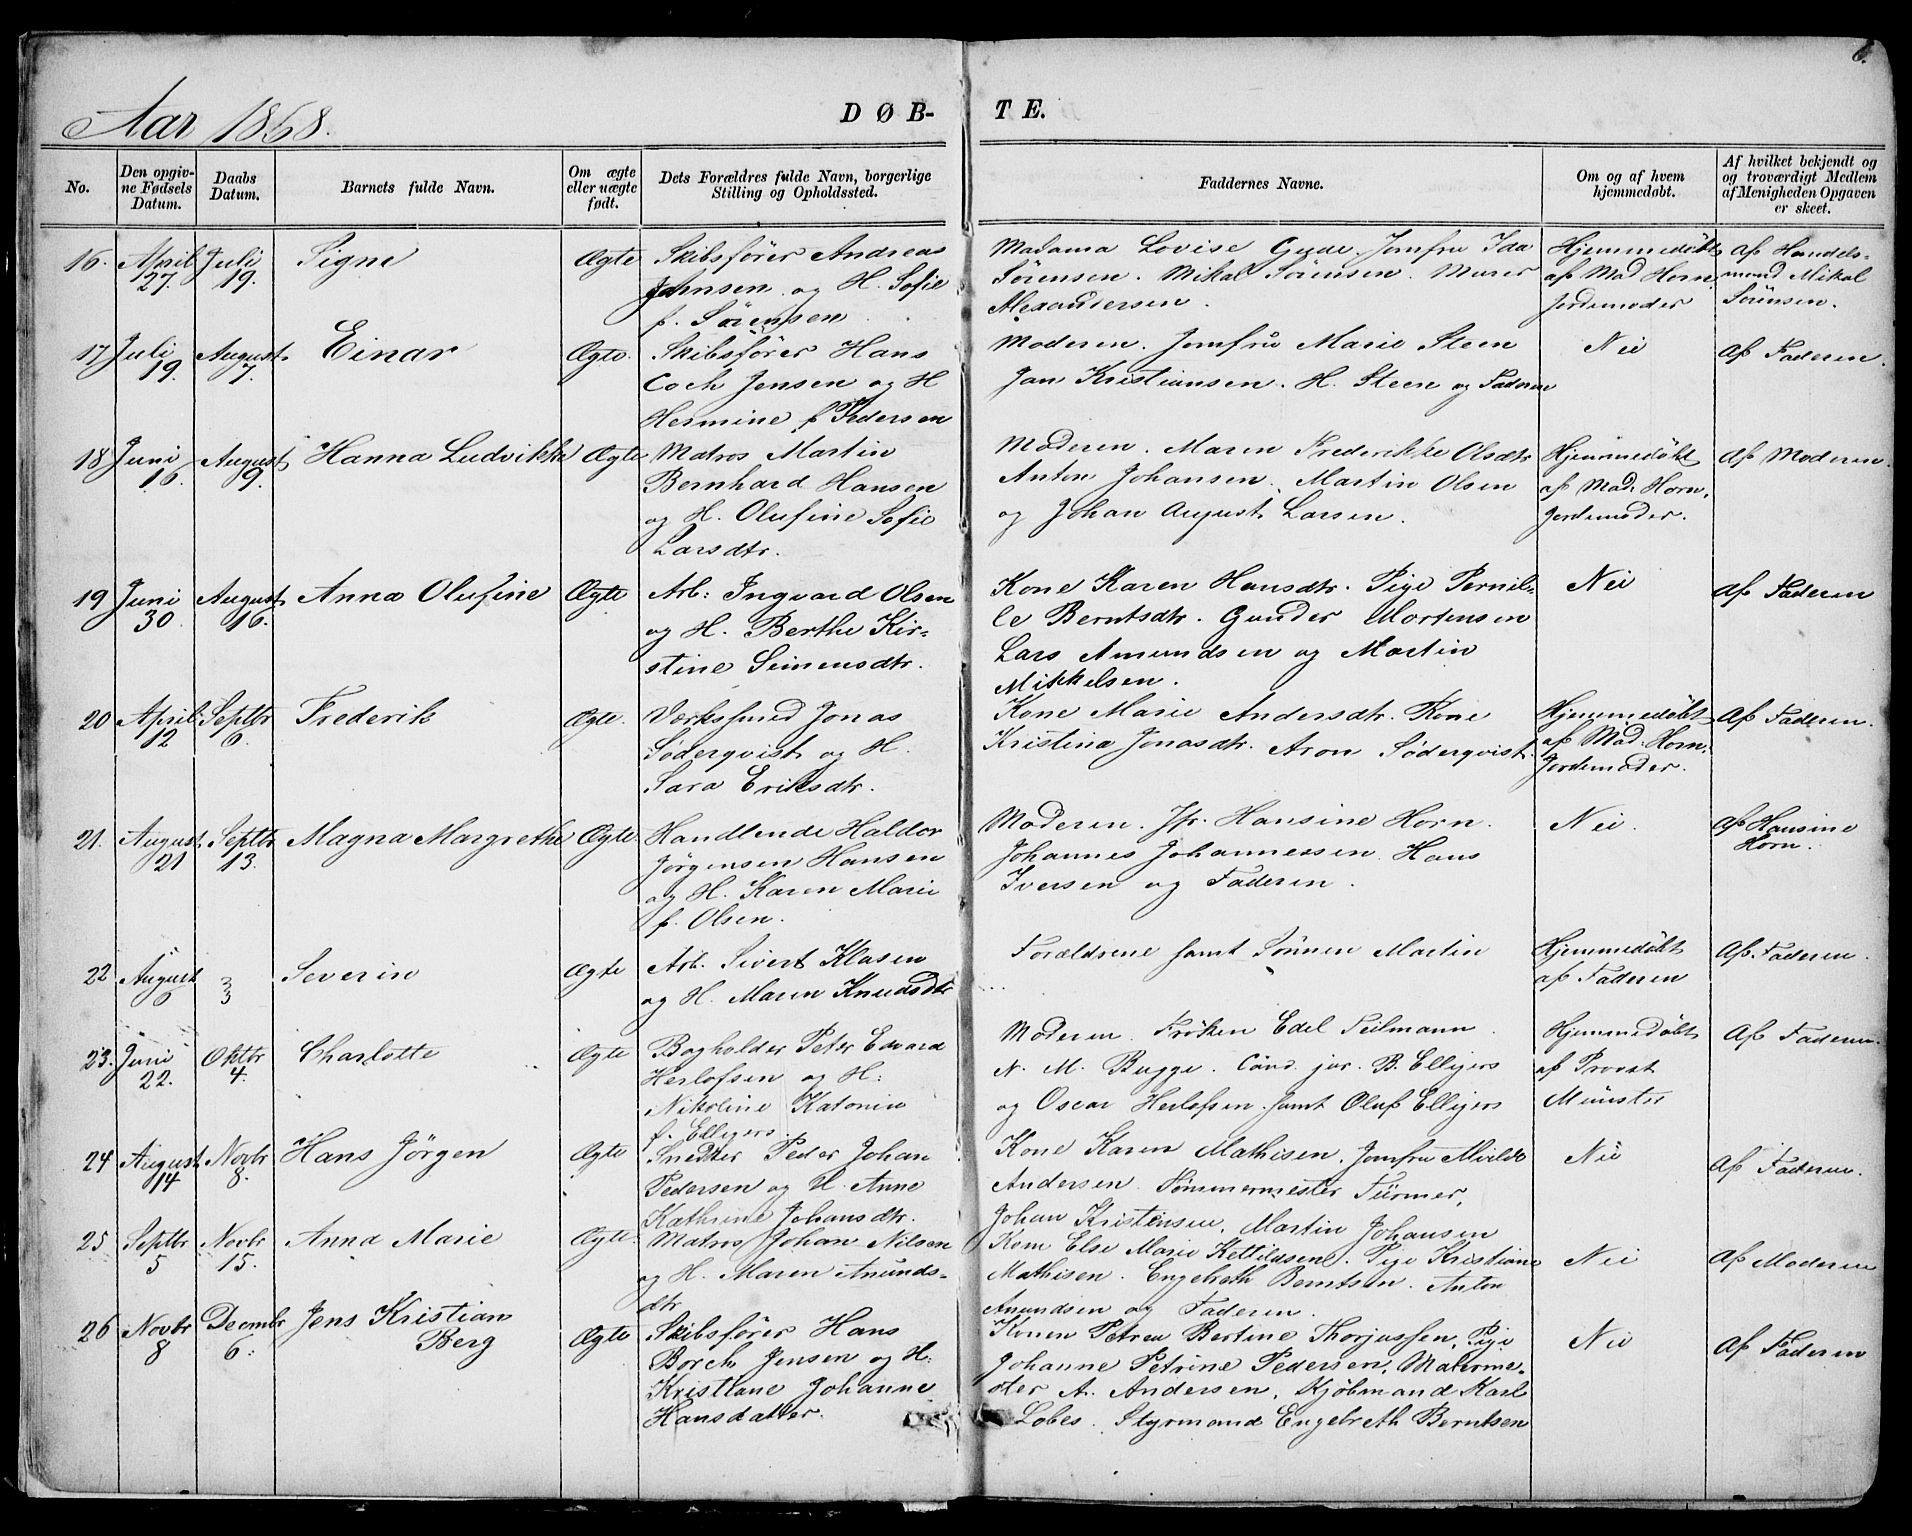 6.
Aar 1868.
DØB-
TE.
No.
Den opgiv-
ne Fødsels
Datum.
Daabs
Datum.
Barnets fulde Navn.
Om ægte
eller uægte
født.
Dets Forældres fulde Navn, borgerlige
Stilling og Opholdssted.
Faddernes Navne.
Om og af hvem
hjemmedøbt.
Af hvilket bekjendt og
og troværdigt Medlem
af Menigheden Opgaven
er skeet.
16. April 27. Juli 19. Signe Ægte
Skibsfører Andreas
Johnsen og H. Sofie
f. Sørensen
Madama Lovise Gude. Jomfru Ida
Sørensen. Mikal Sørensen. Murer
Alexandersen.
Hjemmedøbt
af Mad Horn
Jordemoder
Af Handels-
mand Mikal
Sørensen.
17 Juli 19. August 7. Einar Ægte.
Skibsfører Hans
Coch Jensen og H
Hermine f. Pedersen
Moderen. Jomfru Marie Steen
Jan Kristiansen. H. Steen og Faderen
Nei
Af Faderen.
18 Juni 16. August 9. Hanna Ludvikke Ægte
Matros Martin
Bernhard Hansen
og H. Olufine Sofie
Larsdtr.
Moderen. Maren Frederikke Olsdtr
Anton Johansen. Martin Olsen
og Johan August Larsen.
Hjemmedøbt
af Mad. Horn,
Jordemoder.
Af Moderen.
19 Juni 30. August 16. Anna Olufine Ægte
Arb: Ingvard Olsen
og H. Berthe Kir-
stine Simensdtr.
Kone Karen Hansdtr. Pige Pernil-
le Berntsdtr. Gunder Mortensen
Lars Amundsen og Martin
Mikkelsen.
Nei
Af Faderen
20 April 12 Septbr 6. Frederik Ægte.
Værksmed Jonas
Søderqvist og H.
Sara Eriksdtr.
Kone Marie Andersdtr. Kone
Kristina Jonasdtr. Aron Søderqvist.
Hjemmedøbt
af Mad. Horn.
Jordemoder.
Af Faderen.
21. August 21 Septbr 13. Magna Margrethe Ægte.
Handlende Haldor
Jørgensen Hansen
og H. Karen Marie
f. Olsen.
Moderen. Jfr. Hansine Horn.
Johannes Johannessen. Hans
Iversen og Faderen.
Nei.
Af Hansine
Horn.
22 August 6 3/3 Severin Ægte
Arb. Sivert Klasen
og H. Maren Knudsdtr
Forældrene samt Sønnen Martin
Hjemmedøbt
af Faderen
Af Faderen.
23. Juni 22. Oktbr 4. Charlotte Ægte
Bogholder Peter Edvard
Herlofsen og H:
Nikoline Katonia
f. Elligers.
Moderen. Frøken Edel Seilmann.
N. M. Bugge. Cand. jur. B. Elligers
og Oscar Herlofsen samt Oluf Elligers
Hjemmedøbt
af Provst
Münster
Af Faderen.
24 August 14 Novbr 8. Hans Jörgen Ægte
Snedker Peder Johan
Pedersen og H. Anne
Kathrine Johansdtr.
Kone Karen Mathisen. Jomfru Alvilde
Andersen. Tømmermester Fürmer,
Johan Kristensen, Martin Johansen
Nei
Af Faderen.
25 Septbr 5 Novbr 15. Anna Marie Ægte.
Matros Johan Nilsen
og H. Maren Anunds-
dtr
Kone Else Marie Kettildsen. Pige Kristiane
Mathisen. Engebreth Berntsen. Anton
Anundsen og Faderen.
Nei
Af Moderen
26 Novbr 8 Decmbr 6. Jens Kristian
Berg Ægte
Skibsfører Hans
Borch Jensen og H:
Kristiane Johanne
Hansdatter.
Konen Petrea Bertine Thorjussen, Pige
Johanne Petrine Pedersen, Malerme-
ster A. Andersen, Kjøbmand Karl
Lobes. Styrmand Engebreth Berntsen
Nei
Af Faderen